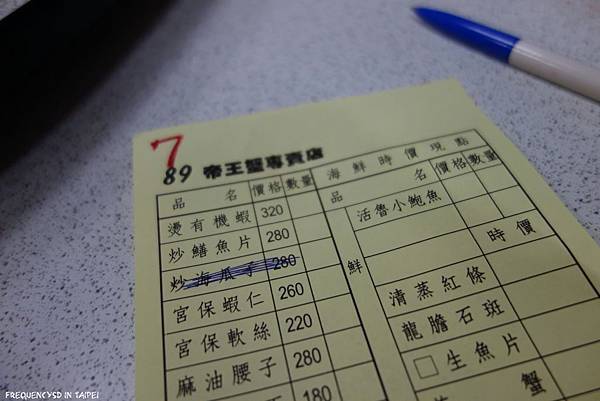 7
89 帝王蟹專賣店
海鮮時價現點
品名 價格 數量
品名 價格 數量
燙有機蝦 320
炒鱔魚片 280
炒海瓜子 280
宮保蝦仁 260
宮保軟絲 220
麻油腰子 280
180
活魯小鮑魚
時價
鮮
清蒸紅條
龍膽石斑
□生魚片
蟹
FREQUENCYSD IN TAIPEI